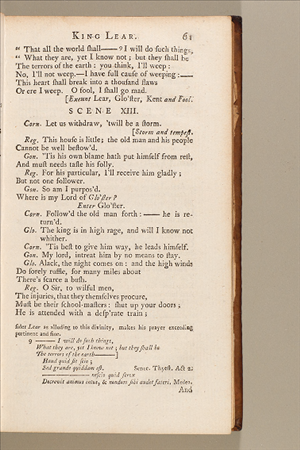 KING LEAR. 61
" That all the world ſhall—— 9 I will do ſuch things,
" What they are, yet I know not; but they ſhall be
The terrors of the earth: you think, I'll weep:
No, I'll not weep.—I have full cauſe of weeping:——
This heart ſhall break into a thouſand flaws
Or ere I weep. O fool, I ſhall go mad.
[Exeunt Lear, Glo'ſter, Kent and Fool.
SCENE XIII.
Corn. Let us withdraw, 'twill be a ſtorm.
[Storm and tempeſt.
Reg. This houſe is little; the old man and his people
Cannot be well beſtow'd.
Gon. 'Tis his own blame hath put himſelf from reſt,
And muſt needs taſte his folly.
Reg. For his particular, I'll receive him gladly;
But not one follower.
Gon. So am I purpos'd.
Where is my Lord of Glo'ſter?
Enter Glo'ſter.
Corn. Follow'd the old man forth:—— he is re-
turn'd.
Glo. The king is in high rage, and will I know not
whither.
Corn. 'Tis beſt to give him way, he leads himſelf.
Gon. My lord, intreat him by no means to ſtay.
Glo. Alack, the night comes on: and the high winds
Do ſorely ruffle, for many miles about
There's ſcarce a buſh.
Reg. O Sir, to wilful men,
The injuries, that they themſelves procure,
Muſt be their ſchool-maſters: ſhut up your doors;
He is attended with a deſp'rate train;
ſides Lear in alluding to this divinity, makes his prayer exceeding
pertinent and fine.
9 —— I will do ſuch things,
What they are, yet I know not; but they ſhall be
The terrors of the earth——]
Haud quid ſit ſcio;
Sed grande quiddam eſt. Senec. Thyeſt. Act 2.
—— neſcio quid ferox
Decrevit animus intus, & nondum ſibi audet fateri. Medea.
And